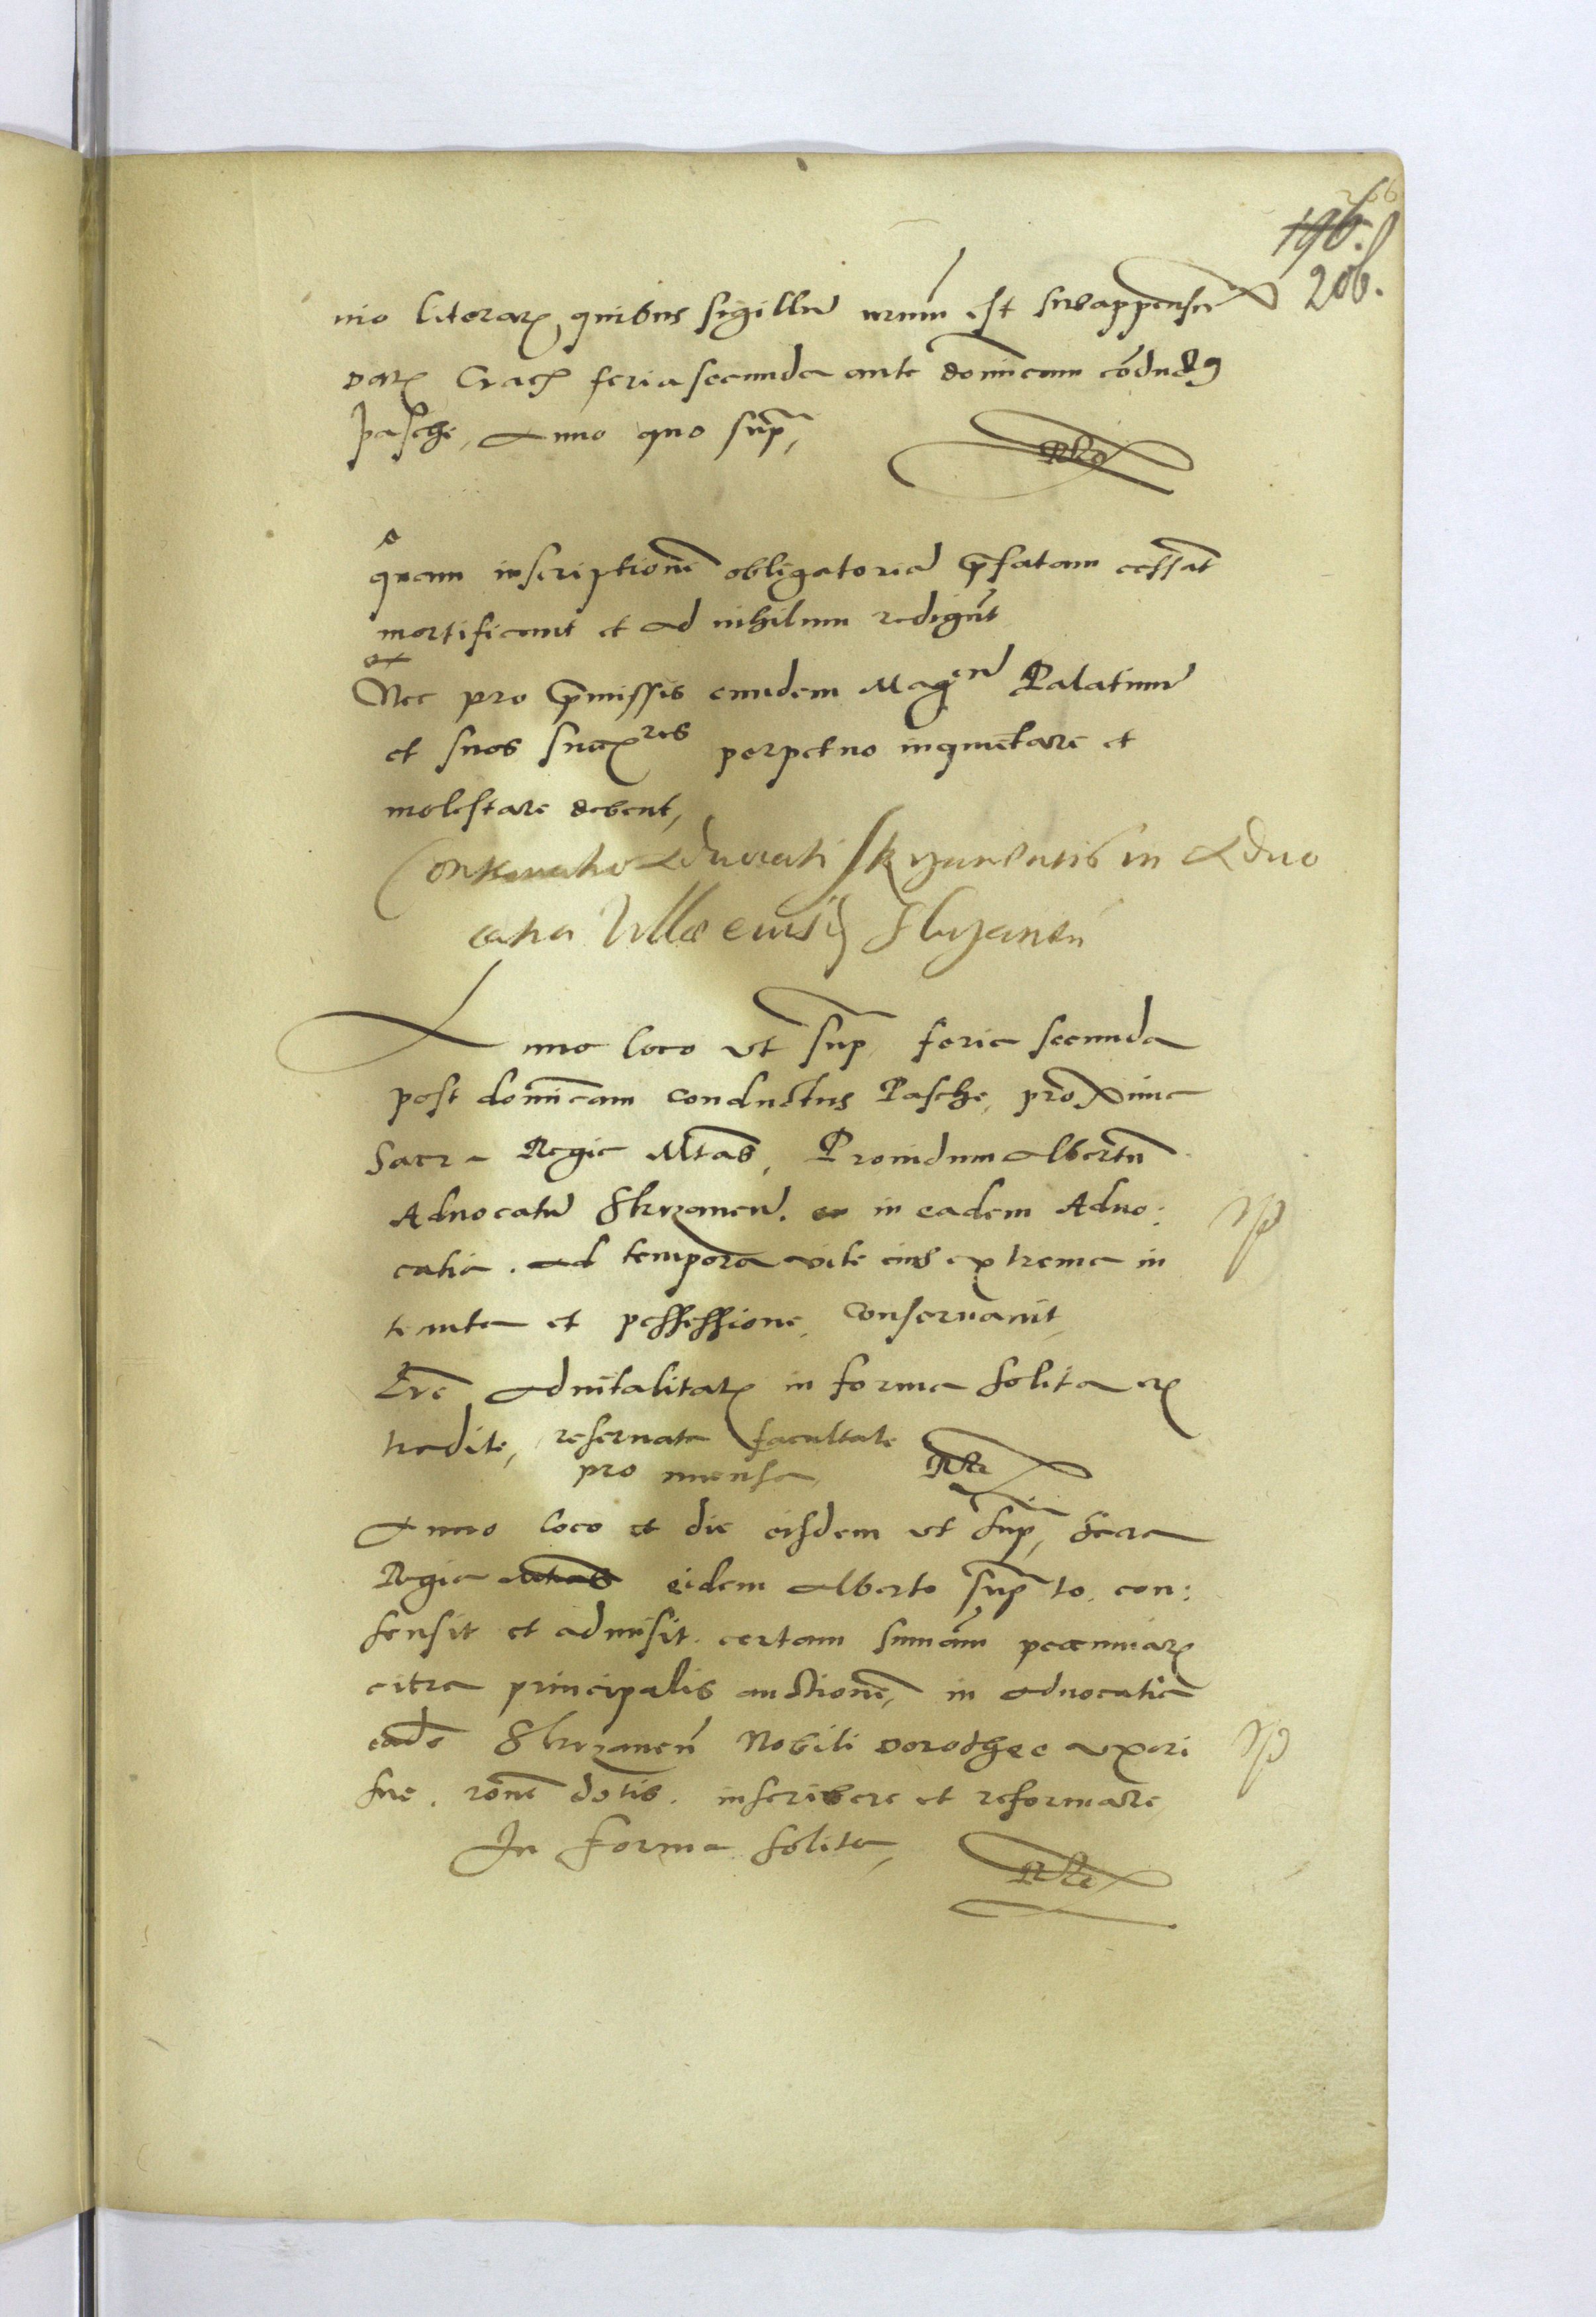 266
196.
206.
nio literarꝫ quibus sigillū nrūm est subappensū
Datꝫ Cracꝫ feria secunda ante domīcam cōductꝯ
pasche, Anno quo supᷓ,
quam inscriptionē obligatoriā p̄fatam cassāt
mortificant et ad nihilum redigūt
Nec pro p̄missis eundem Magcū Palatinū
et suos succꝫres perpetuo inquietare et
molestare debent,
Aduocati Skrzynensis in Aduo
catia Skrzynen̄
Anno loco vt sup̄ feria secunda
post domīcam conductus Pasche, proxima
Sacra Regia Mtas, Prouidum Albertū
Aduocatū Skrzynen̄. in eadem Aduo:
catia. ad tempora vite eius extrema in
tenuta et possessione, conseruauit,
Lrē Aduitalitatꝫ in forma solita exꝫ
tradite, reseruata facultate
pro mensa
Anno loco et die eisdem vt sup̄, Sacra
Regia Mtas eidem Alberto sup̄to. con:
sensit et admisit. certam sumām pecuniarꝫ
citra principalis auctionē, in aduocatia
eadē Skrzynen̄ Nobili Dorothee vxori
sue. rōne dotis. inscribere et reformare,
In forma solita,